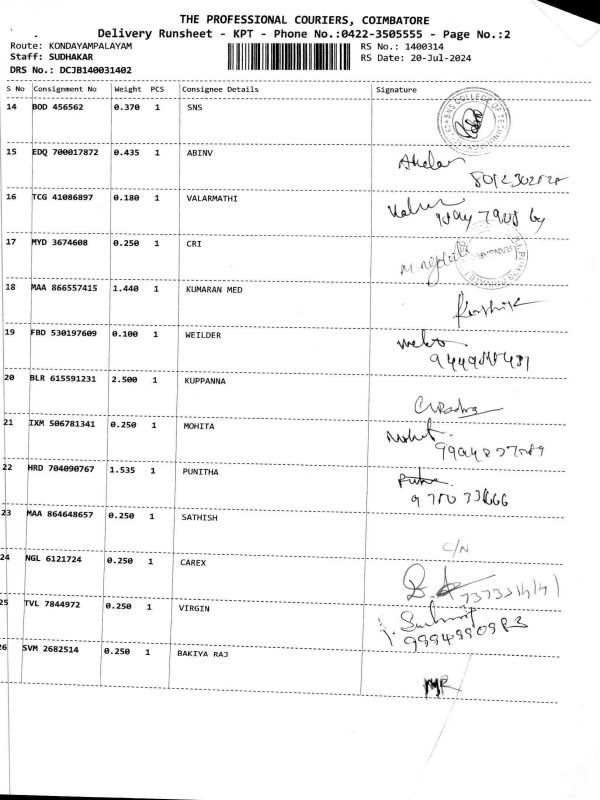 THE PROFESSIONAL COURIERS, COIMBATORE
Delivery Runsheet - KPT - Phone No.:0422-3505555 - Page No.:2
Route: KONDAYAMPALAYAM RS No.: 1400314
Staff: SUDHAKAR RS Date: 20-Jul-2024
DRS No.: DCJB140031402
S No Consignment No Weight PCS Consignee Details Signature
14 BOD 456562 0.370 1 SNS
SNS COLLEGE OF TECHNOLOGY
15 EDQ 700017872 0.435 1 ABINV
16 TCG 41086897 0.180 1 VALARMATHI
17 MYD 3674608 0.250 1 CRI
18 MAA 866557415 1.440 1 KUMARAN MED
19 FBD 530197609 0.100 1 WEILDER
20 BLR 615591231 2.500 1 KUPPANNA
21 IXM 506781341 0.250 1 MOHITA
22 HRD 704090767 1.535 1 PUNITHA
23 MAA 864648657 0.250 1 SATHISH
C/N
24 NGL 6121724 0.250 1 CAREX
25 TVL 7844972 0.250 1 VIRGIN
26 SVM 2682514 0.250 1 BAKIYA RAJ